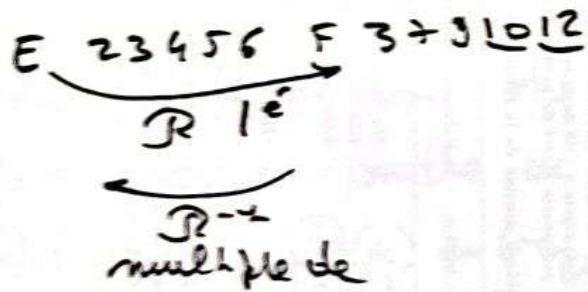 E 23456 F 3 7 9 10 12
R 1é
R⁻¹
multiple de